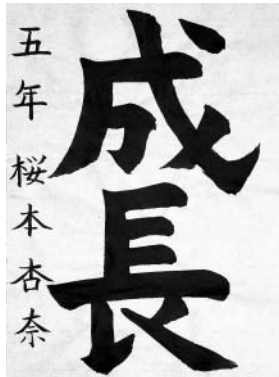 成長
五年 桜本杏奈